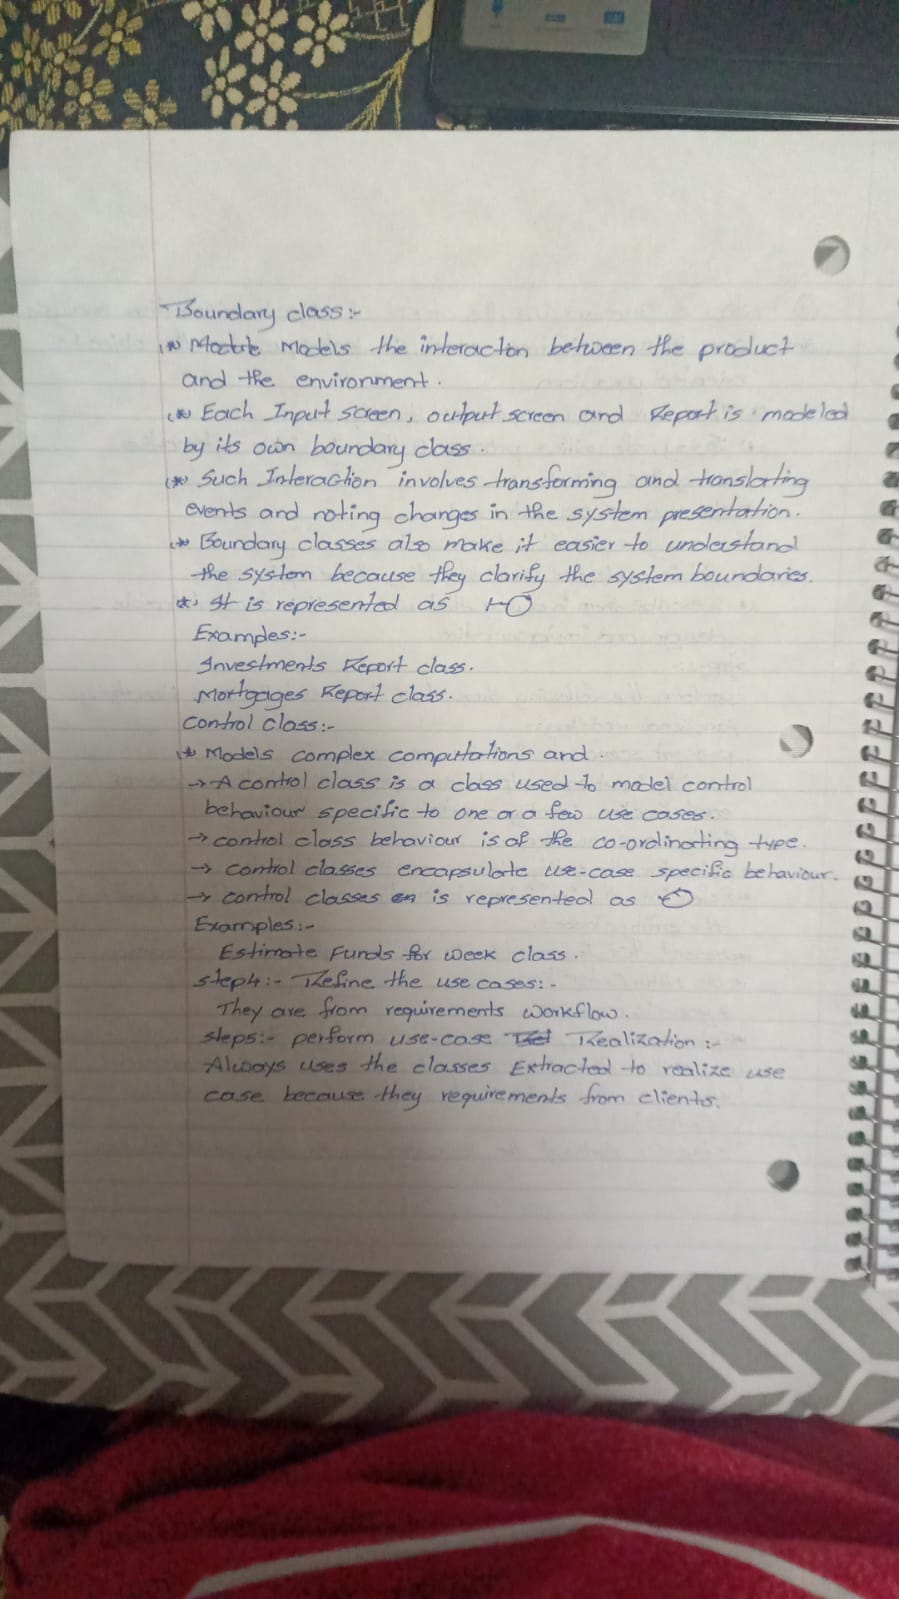 Boundary class :-
* Models the interaction between the product
and the environment.
* Each Input screen, output screen and Report is modeled
by its own boundary class.
* Such Interaction involves transforming and translating
events and noting changes in the system presentation.
* Boundary classes also make it easier to understand
the system because they clarify the system boundaries.
* It is represented as
Examples:-
Investments Report class.
Mortgages Report class.
Control class:-
* Models complex computations and.
→ A control class is a class used to model control
behaviour specific to one or a few use cases.
→ control class behaviour is of the co-ordinating type.
→ control classes encapsulate use-case specific behaviour.
→ control classes is represented as
Examples:-
Estimate Funds for week class.
step4:- Refine the use cases:-
They are from requirements workflow.
steps:- perform use-case Realization :-
Always uses the classes Extracted to realize use
case because they requirements from clients.